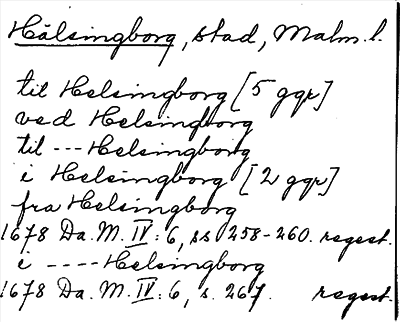 Hälsingborg, stad, Malm. l.
til Helsingborg [5 ggr]
ved Helsingborg
til --- Helsingborg
i Helsingborg [2 ggr]
fra Helsingborg
1678 Da. M. IV: 6, ss 258-260. regest.
i ---- Helsingborg
1678 Da. M. IV: 6, s. 267. regest.